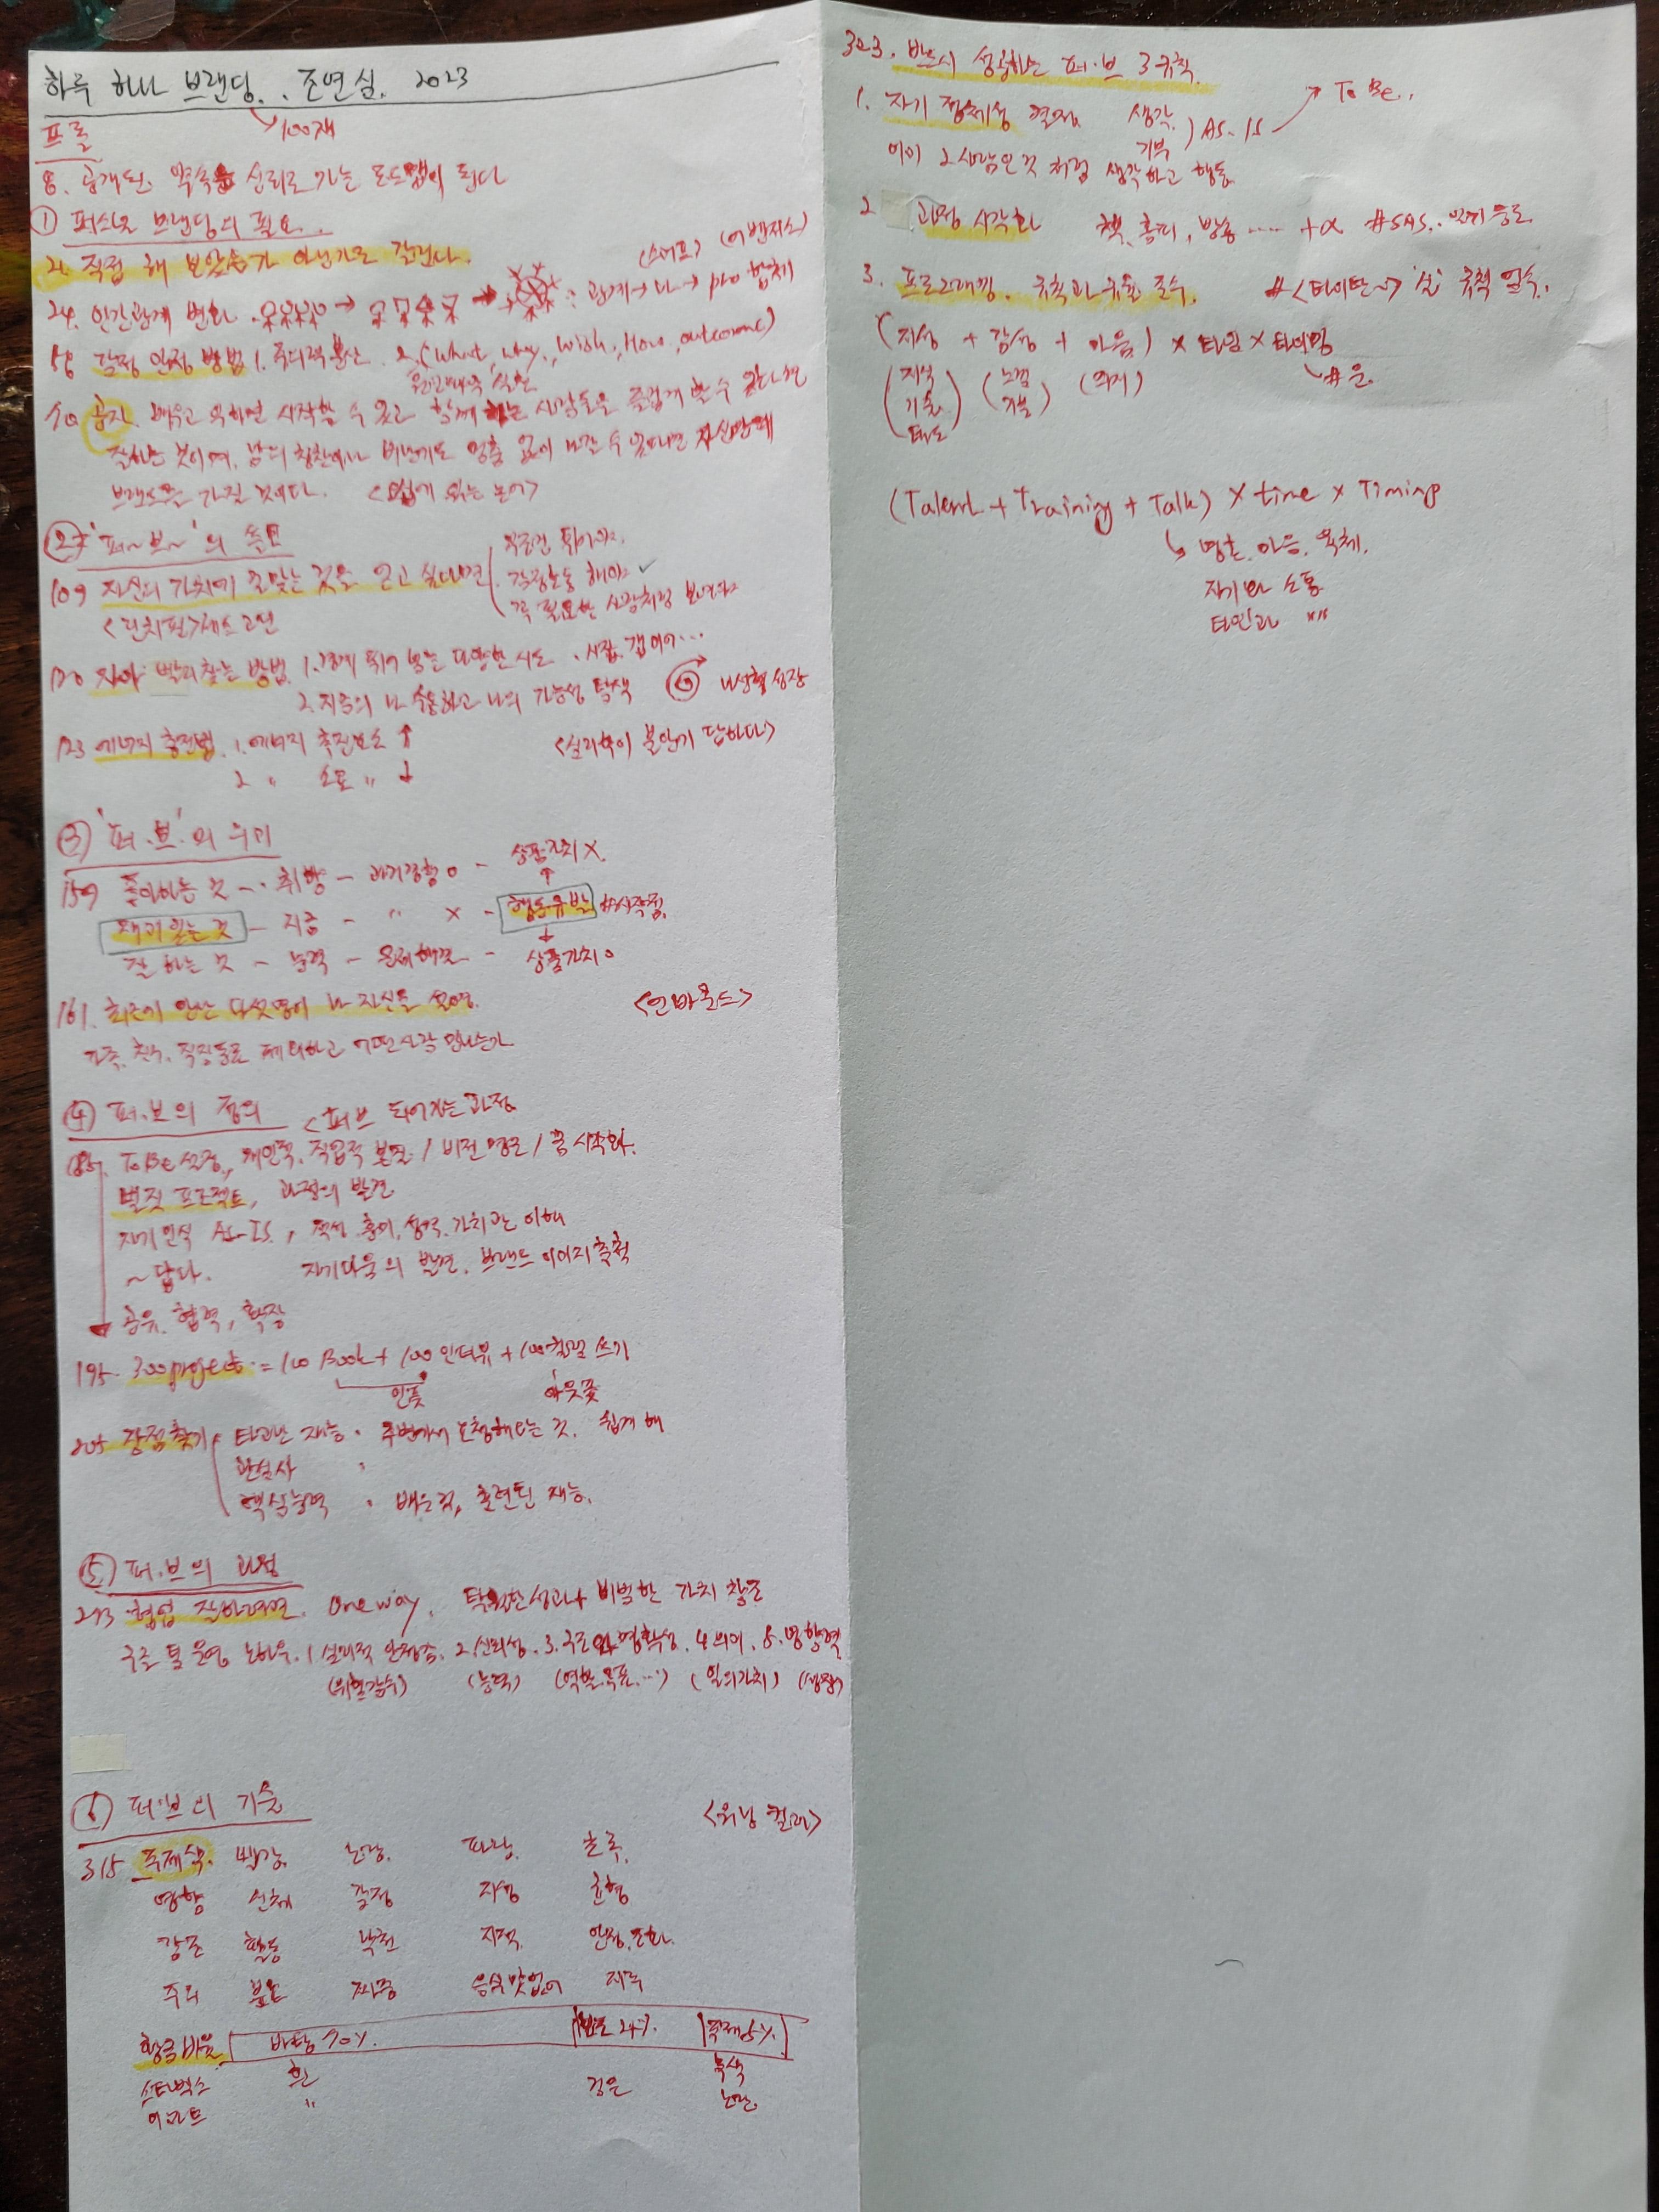 하루 하나 브랜딩. 조연심. 2023
→ 100개
프롤
8. 공개된 약속은 신뢰로 가는 로드맵이 된다
① 퍼스널 브랜딩의 필요.
21. 직접 해 보았는가 아닌가로 갈린다.
(스허프) (어벤저스)
24. 인간관계 변화. → → : 관계→나→pro 합체
58 감정 안정 방법 1. 주의력분산. 2. (What, Why, Wish, How, outcome)
90 공자. 배우고 익히면 시작할 수 있고 함께 하는 사람들을 즐겁게 할 수 있다면
잘하는 것이며, 남의 칭찬이나 비난에도 멈춤 없이 나갈 수 있다면 자신만의
브랜드를 가질 것이다. <쉽게 읽는 논어>
② '퍼~브~'의 속도
109 자신의 가치에 걸맞는 것을 얻고 싶다면
무조건 튀어야.
감정노동 해야 ✓
꼭 필요한 사람처럼 보여야
<린치핀> 세스 고딘
120 자아 빨리 찾는 방법. 1. 관계 튀어 넘는 다양한 시도. 시집. 갭이어...
2. 지금의 나 수용하고 나의 가능성 탐색 나선형 성장
123 에너지 충전법. 1. 에너지 충전요소 ↑ <심리학이 불안에 답하다>
2 〃 소모 〃 ↓
③ '퍼.브.'의 의미
159 좋아하는 것 - 취향 - 과거경험 o - 상품가치 X.
재미있는 것 - 지금 - 〃 X - 행동유발 #시작점.
잘 하는 것 - 능력 - 문제해결 - 상품가치 o
161. 최근에 만난 다섯명이 나 자신을 설명. <언바운드>
가족, 친구, 직장동료 제외하고 어떤사람 만나는가
④ 퍼.브의 정의 < 퍼브 되어가는 과정
185. To Be 설정, 개인적. 직업적 본질 / 비전 명료 / 꿈 시각화.
벌컷 프로젝트, 과정의 발견
자기인식 AS-IS, 적성 흥미, 성격. 가치관 이해
~답다. 자기다움의 발견, 브랜드 이미지 축척
공유. 협력, 확장
195. 300 project = 100 Book + 100 인터뷰 + 100 칼럼 쓰기
인풋 아웃풋
205 장점찾기 타고난 재능. 주변에서 요청해오는 것. 쉽게 해
관심사 .
핵심능력 . 배운것, 훈련된 재능.
⑤ 퍼.브의 과정
293. 협업 잘하려면. One way. 탁월한 성과나 비범한 가치 창조
구글 팀 운영 노하우. 1 심리적 안정감. 2. 신뢰성. 3. 구조와 명확성. 4 의미. 5. 영향력
(위험감수) (능력) (역할. 목표...) (일의가치) (영향)
⑥ 퍼.브의 기술 <위닝 컬러>
315 주제색. 빨강. 노랑. 파랑. 초록.
영향 신체 감정 지성 균형
강조 활동 낙천 지적. 안정. 조화.
주의 분노 짜증 음식맛없어 지루
황금비율 바탕 70% 보조 25% 주제 5%.
스타벅스 흰 검은 녹색
이마트 〃 노란
323. 반드시 성공하는 퍼.브 3 규칙.
1. 자기 정체성 결정. 생각. 기부 ) AS-IS → To Be.
이미 그 사람인것 처럼 생각하고 행동.
2. 과정 시각화 책, 홈피, 방송 ..... +α #SNS. 인기 등로
3. 프로그래밍. 규칙과 규율 준수. #<타이탄~> '신' 규칙 엄수.
(지성 + 감성 + 마음) × 타임 × 타이밍
#운.
(지식 기술 태도) (느낌 기분) (의지)
(Talent + Training + Talk) × time × Timing
↳ 영혼. 마음. 육체.
자기와 소통
타인과 〃